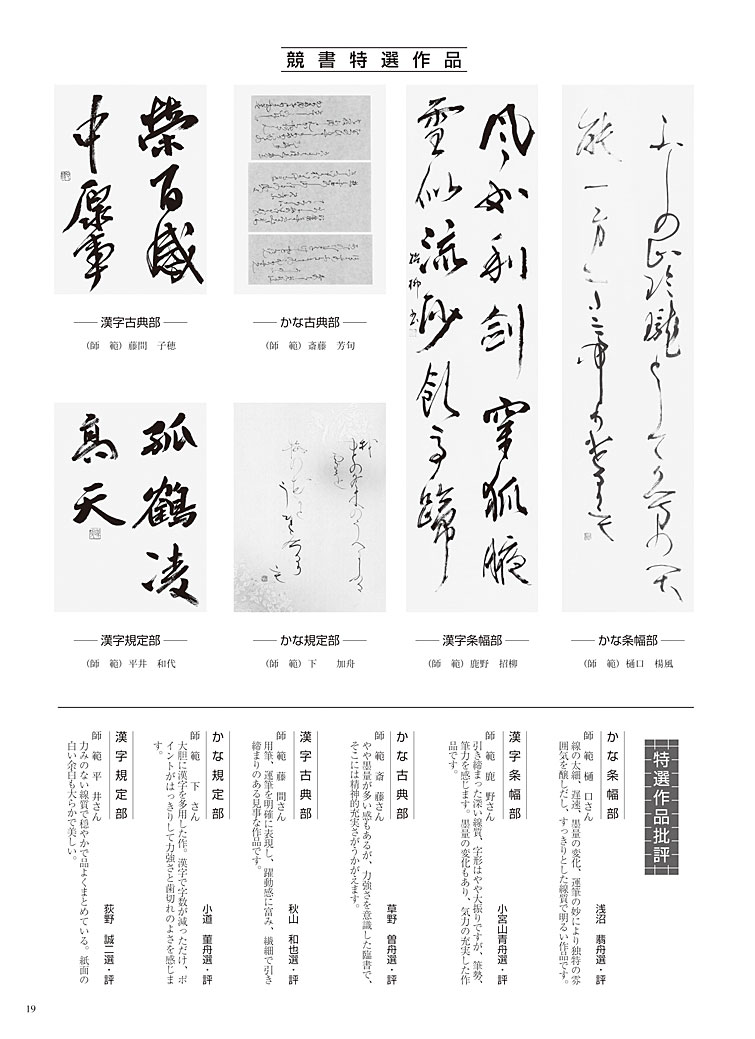 競書特選作品
榮百感
中原事
漢字古典部
(師　範) 藤間　子穂
かな古典部
(師　範) 斎藤　芳旬
風如利劍穿狐腋
雪似流沙飲馬蹄
漢字条幅部
(師　範) 鹿野　招柳
かな条幅部
(師　範) 樋口　楊風
孤鶴凌
高天
漢字規定部
(師　範) 平井　和代
かな規定部
(師　範) 下　　加舟
特選作品批評
かな条幅部
浅沼　翡舟選・評
師　範　樋　口さん
線の太細、遅速、墨量の変化、運筆の妙により独特の雰
囲気を醸しだし、すっきりとした線質で明るい作品です。
漢字条幅部
小宮山青舟選・評
師　範　鹿　野さん
引き締まった深い線質、字形はやや大振りですが、筆勢、
筆力を感じます。墨量の変化もあり、気力の充実した作
品です。
かな古典部
草野　曽舟選・評
師　範　斎　藤さん
やや墨量が多い感もあるが、力強さを意識した臨書で、
そこには精神的充実さがうかがえます。
漢字古典部
秋山　和也選・評
師　範　藤　間さん
用筆、運筆を明確に表現し、躍動感に富み、繊細で引き
締まりのある見事な作品です。
かな規定部
小道　菫舟選・評
師　範　　下　さん
大胆に漢字を多用した作。漢字で字数が減っただけ、ポ
イントがはっきりして力強さと歯切れのよさを感じま
す。
漢字規定部
荻野　誠二選・評
師　範　平　井さん
力みのない線質で穏やかで品よくまとめている。紙面の
白い余白も大らかで美しい。
19